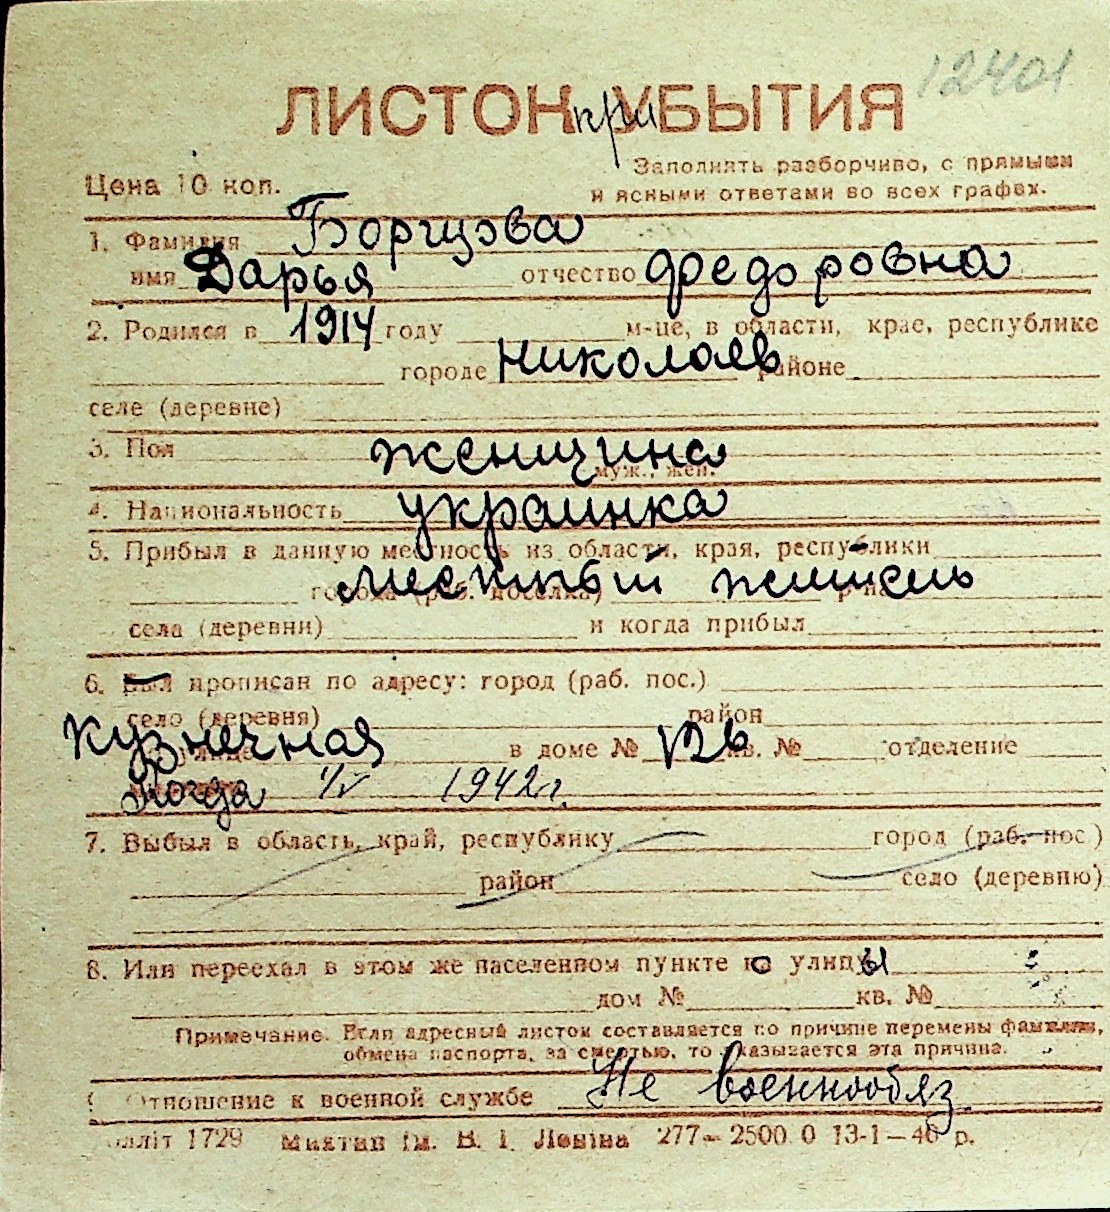 12401
ЛИСТОК приУБЫТИЯ
Заполнять разборчиво, с прямыми
и ясными ответами во всех графах.
Цена 10 коп.
1. Фамилия Борщова
имя Дарья отчество Федоровна
2. Родился в 1914 году м-це, в области, крае, республике
городе Николаев районе
селе (деревне)
3. Пол женщина
муж., жен.
4. Национальность украинка
5. Прибыл в данную местность из области, края, республики
города (раб. поселка) местный житель р-на
села (деревни) и когда прибыл
6. Был прописан по адресу: город (раб. пос.)
село (деревня) район
Кузнечная улице в доме № кв. № отделение
Когда 1/V 1942 г.
7. Выбыл в область, край, республику город (раб. пос.)
район село (деревню)
8. Или переехал в этом же населенном пункте с улицы
дом № кв. №
Примечание. Если адресный листок составляется по причине перемены фамилии,
обмена паспорта, за смертью, то указывается эта причина.
Отношение к военной службе Не военнообяз.
1729 ім. В. І. Леніна 277—2500 0 13-1—40 р.